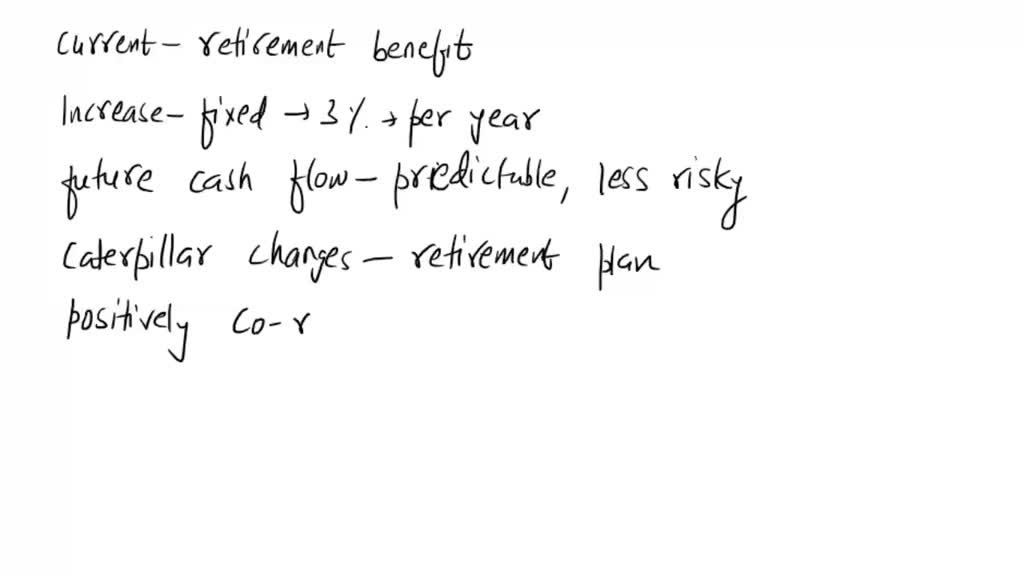 Current - retirement benefit
Increase - fixed → 3 %. → per year
future cash flow - predictable, less risky
Caterpillar changes - retirement plan
positively co-r